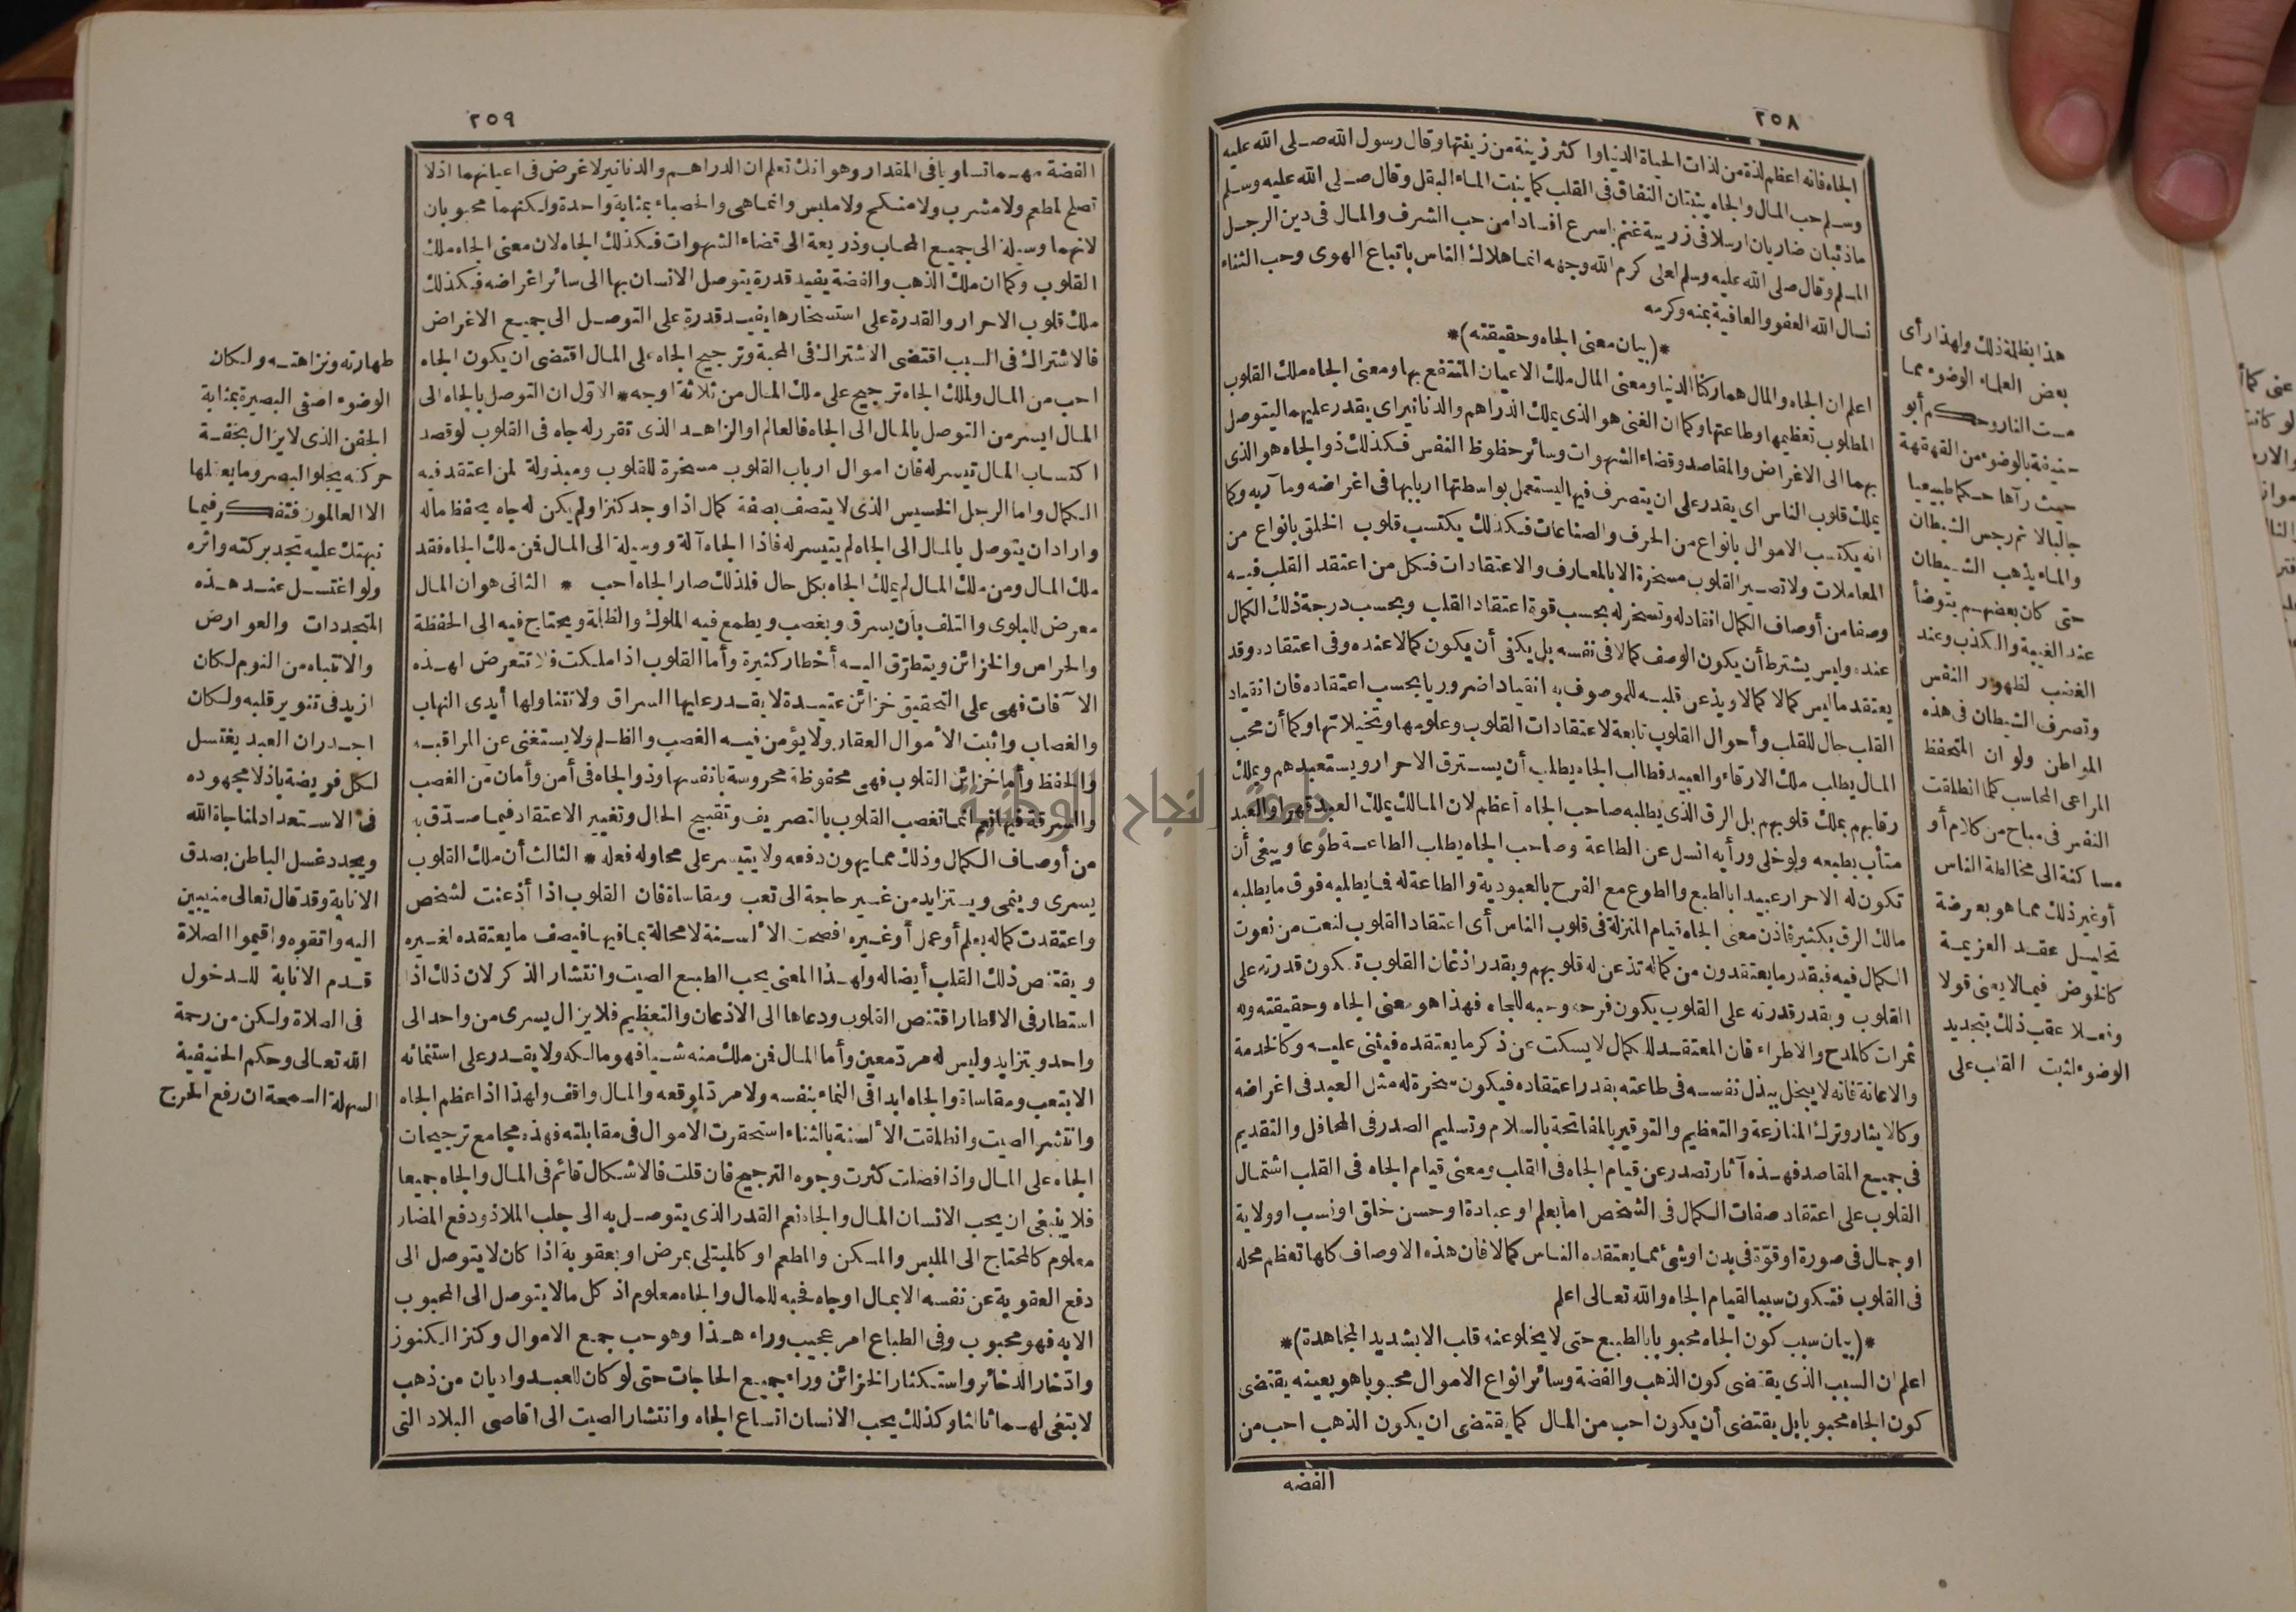 ٢٥٨
الجاه فانه اعظم لذة من لذات الحياة الدنيا واكثر زينة من زينتها وقال رسول الله صلى الله عليه
وسلم حب المال والجاه ينبتان النفاق فى القلب كما ينبت الماء البقل وقال صلى الله عليه وسلم
ماذئبان ضاريان ارسلا فى زريبة غنم باسرع افسادا من حب الشرف والمال فى دين الرجل
المسلم وقال صلى الله عليه وسلم لعلى كرم الله وجهه انما هلاك الناس باتباع الهوى وحب الثناء
نسال الله العفو والعافية بمنه وكرمه
*(بيان معنى الجاه وحقيقته)*
اعلم ان الجاه والمال هما ركنا الدنيا ومعنى المال ملك الاعيان المنتفع بها ومعنى الجاه ملك القلوب
المطلوب تعظيمها وطاعتها وكما ان الغنى هو الذى يملك الدراهم والدنانير اى يقدر عليهما ليتوصل
بهما الى الاغراض والمقاصد وقضاء الشهوات وسائر حظوظ النفس فكذلك ذو الجاه هو الذى
يملك قلوب الناس اى يقدر على ان يتصرف فيها ليستعمل بواسطتها اربابها فى اغراضه ومآربه وكما
انه يكتسب الاموال بانواع من الحرف والصناعات فكذلك يكتسب قلوب الخلق بانواع من
المعاملات ولا تصير القلوب مسخرة الا بالمعارف والاعتقادات فكل من اعتقد القلب فيه
وصفا من أوصاف الكمال انقاد له وتسخر له بحسب قوة اعتقاد القلب وبحسب درجة ذلك الكمال
عنده وليس يشترط أن يكون الوصف كمالا فى نفسه بل يكفى أن يكون كمالا عنده وفى اعتقاده وقد
يعتقد ما ليس كمالا كمالا ويذعن قلبه للموصوف به انقيادا ضروريا بحسب اعتقاده فان انقياد
القلب حال للقلب وأحوال القلوب تابعة لاعتقادات القلوب وعلومها وتخيلاتها وكما أن محب
المال يطلب ملك الارقاء والعبيد فطالب الجاه يطلب أن يسترق الاحرار ويستعبدهم ويملك
رقابهم بملك قلوبهم بل الرق الذى يطلبه صاحب الجاه أعظم لان المالك يملك العبد قهرا والعبد
متأب بطبعه ولو خلى ورأيه انسل عن الطاعة وصاحب الجاه يطلب الطاعة طوعا ويبغى أن
تكون له الاحرار عبيدا بالطبع والطوع مع الفرح بالعبودية والطاعة له فما يطلبه فوق ما يطلبه
مالك الرق بكثير فاذن معنى الجاه قيام المنزلة فى قلوب الناس أى اعتقاد القلوب لنعت من نعوت
الكمال فيه فبقدر ما يعتقدون من كماله تذعن له قلوبهم وبقدر اذعان القلوب تكون قدرته على
القلوب وبقدر قدرته على القلوب يكون فرحه وحبه للجاه فهذا هو معنى الجاه وحقيقته وله
ثمرات كالمدح والاطراء فان المعتقد للكمال لا يسكت عن ذكر ما يعتقده فيثنى عليه وكالخدمة
والاعانة فانه لا يبخل ببذل نفسه فى طاعته بقدر اعتقاده فيكون سخرة له مثل العبد فى اغراضه
وكالايثار وترك المنازعة والتعظيم والتوقير بالمفاتحة بالسلام وتسليم الصدر فى المحافل والتقديم
فى جميع المقاصد فهذه آثار تصدر عن قيام الجاه فى القلب ومعنى قيام الجاه فى القلب اشتمال
القلوب على اعتقاد صفات الكمال فى الشخص اما بعلم او عبادة او حسن خلق او نسب او ولاية
او جمال فى صورة او قوّة فى بدن او شئ مما يعتقده الناس كمالا فان هذه الاوصاف كلها تعظم محله
فى القلوب فتكون سببا لقيام الجاه والله تعالى اعلم
*(بيان سبب كون الجاه محبوبا بالطبع حتى لا يخلو عنه قلب الا بشديد المجاهدة)*
اعلم ان السبب الذى يقتضى كون الذهب والفضة وسائر انواع الاموال محبوبا هو بعينه يقتضى
كون الجاه محبوبا بل يقتضى أن يكون احب من المال كما يقتضى ان يكون الذهب احب من
الفضه
هذا بظلمة ذلك ولهذا رأى
بعض العلماء الوضوء مما
مست النار وحكم أبو
حنيفة بالوضوء من القهقهة
حيث رآها حكما طبيعيا
جالبا لاثم رجس الشيطان
والماء يذهب الشيطان
حتى كان بعضهم يتوضأ
عند الغيبة والكذب وعند
الغضب لظهور النفس
وتصرف الشيطان فى هذه
المواطن ولو ان المتحفظ
المراعى المحاسب كلما انطلقت
النفس فى مباح من كلام أو
مساكنة الى مخالطة الناس
أو غير ذلك مما هو بعرضة
تحليل عقد العزيمة
كالخوض فيما لا يعنى قولا
وفعلا عقب ذلك بتجديد
الوضوء لثبت القلب على
٢٥٩
الفضة مهما تساويا فى المقدار وهو انك تعلم ان الدراهم والدنانير لا غرض فى اعيانهما اذ لا
تصلح لمطعم ولا مشرب ولا منكح ولا ملبس وانما هى والحصباء بمثابة واحدة ولكنهما محبوبان
لانهما وسيلة الى جميع المحاب وذريعة الى قضاء الشهوات فكذلك الجاه لان معنى الجاه ملك
القلوب وكما ان ملك الذهب والفضة يفيد قدرة يتوصل الانسان بها الى سائر اغراضه فكذلك
ملك قلوب الاحرار والقدرة على استسخارها يفيد قدرة على التوصل الى جميع الاغراض
فالاشتراك فى السبب اقتضى الاشتراك فى المحبة وترجيح الجاه على المال اقتضى ان يكون الجاه
احب من المال ولملك الجاه ترجيح على ملك المال من ثلاثة اوجه * الاوّل ان التوصل بالجاه الى
المال ايسر من التوصل بالمال الى الجاه فالعالم او الزاهد الذى تقرر له جاه فى القلوب لو قصد
اكتساب المال تيسر له فان اموال ارباب القلوب مسخرة للقلوب ومبذولة لمن اعتقد فيه
الكمال واما الرجل الخسيس الذى لا يتصف بصفة كمال اذا وجد كنزا ولم يكن له جاه يحفظ ماله
واراد ان يتوصل بالمال الى الجاه لم يتيسر له فاذا الجاه آلة ووسيلة الى المال فمن ملك الجاه فقد
ملك المال ومن ملك المال لم يملك الجاه بكل حال فلذلك صار الجاه احب * الثانى هو ان المال
معرض للبلوى والتلف بأن يسرق ويغصب ويطمع فيه الملوك والظلمة ويحتاج فيه الى الحفظة
والحراس والخزائن ويتطرّق اليه أخطار كثيرة وأما القلوب اذا ملكت فلا تتعرض لهذه
الآفات فهى على التحقيق خزائن عتيدة لا يقدر عليها السراق ولا تتناولها أيدى النهاب
والغصاب واثبت الأموال العقار ولا يؤمن فيه الغصب والظلم ولا يستغنى عن المراقبة
والحفظ وأما خزائن القلوب فهى محفوظة محروسة بانفسها وذو الجاه فى أمن وأمان من الغصب
والسرقة فيها نعم انما تغصب القلوب بالتصريف وتقبيح الحال وتغيير الاعتقاد فيما صدّق به
من أوصاف الكمال وذلك مما يهون دفعه ولا يتيسر على محاوله فعله * الثالث أن ملك القلوب
يسرى وينمى ويتزايد من غير حاجة الى تعب ومقاساة فان القلوب اذا أذعنت لشخص
واعتقدت كماله بعلم أو عمل أو غيره افصحت الألسنة لا محالة بما فيها فيصف ما يعتقده لغيره
ويقتنص ذلك القلب أيضا له ولهذا المعنى يحب الطبع الصيت وانتشار الذكر لان ذلك اذا
استطار فى الاقطار اقتنص القلوب ودعاها الى الاذعان والتعظيم فلا يزال يسرى من واحد الى
واحد ويتزايد وليس له مردّ معين وأما المال فمن ملك منه شيأ فهو مالكه ولا يقدر على استنمائه
الا بتعب ومقاساة والجاه ابدا فى النماء بنفسه ولا مردّ لموقعه والمال واقف ولهذا اذا عظم الجاه
وانتشر الصيت وانطلقت الألسنة بالثناء استحقرت الاموال فى مقابلته فهذه مجامع ترجيحات
الجاه على المال واذا فصلت كثرت وجوه الترجيح فان قلت فالاشكال قائم فى المال والجاه جميعا
فلا ينبغى ان يحب الانسان المال والجاه نعم القدر الذى يتوصل به الى جلب الملاذ ودفع المضار
معلوم كالمحتاج الى الملبس والمسكن والمطعم او كالمبتلى بمرض او بعقوبة اذا كان لا يتوصل الى
دفع العقوبة عن نفسه الا بمال او جاه فحبه للمال والجاه معلوم اذ كل ما لا يتوصل الى المحبوب
الا به فهو محبوب وفى الطباع امر عجيب وراء هذا وهو حب جمع الاموال وكنز الكنوز
وادّخار الذخائر واستكثار الخزائن وراء جميع الحاجات حتى لو كان للعبد واديان من ذهب
لابتغى لهما ثالثا وكذلك يحب الانسان اتساع الجاه وانتشار الصيت الى اقاصى البلاد التى
طهارته ونزاهته ولكان
الوضوء لصفى البصيرة بمثابة
الجفن الذى لا يزال بخفة
حركته يجلو البصر وما يعقلها
الا العالمون فتفكر فيما
نبهتك عليه تجد بركته واثره
ولو اغتسل عند هذه
المتجددات والعوارض
والانتباه من النوم لكان
ازيد فى تنوير قلبه ولكان
اجدر ان العبد يغتسل
لكل فريضة باذلا مجهوده
فى الاستعداد لمناجاة الله
ويجدد غسل الباطن بصدق
الانابة وقد قال تعالى منيبين
اليه واتقوه واقيموا الصلاة
قدم الانابة للدخول
فى الصلاة ولكن من رحمة
الله تعالى وحكم الحنيفية
السهلة السمحة ان رفع الحرج
جامعة النجاح الوطنية